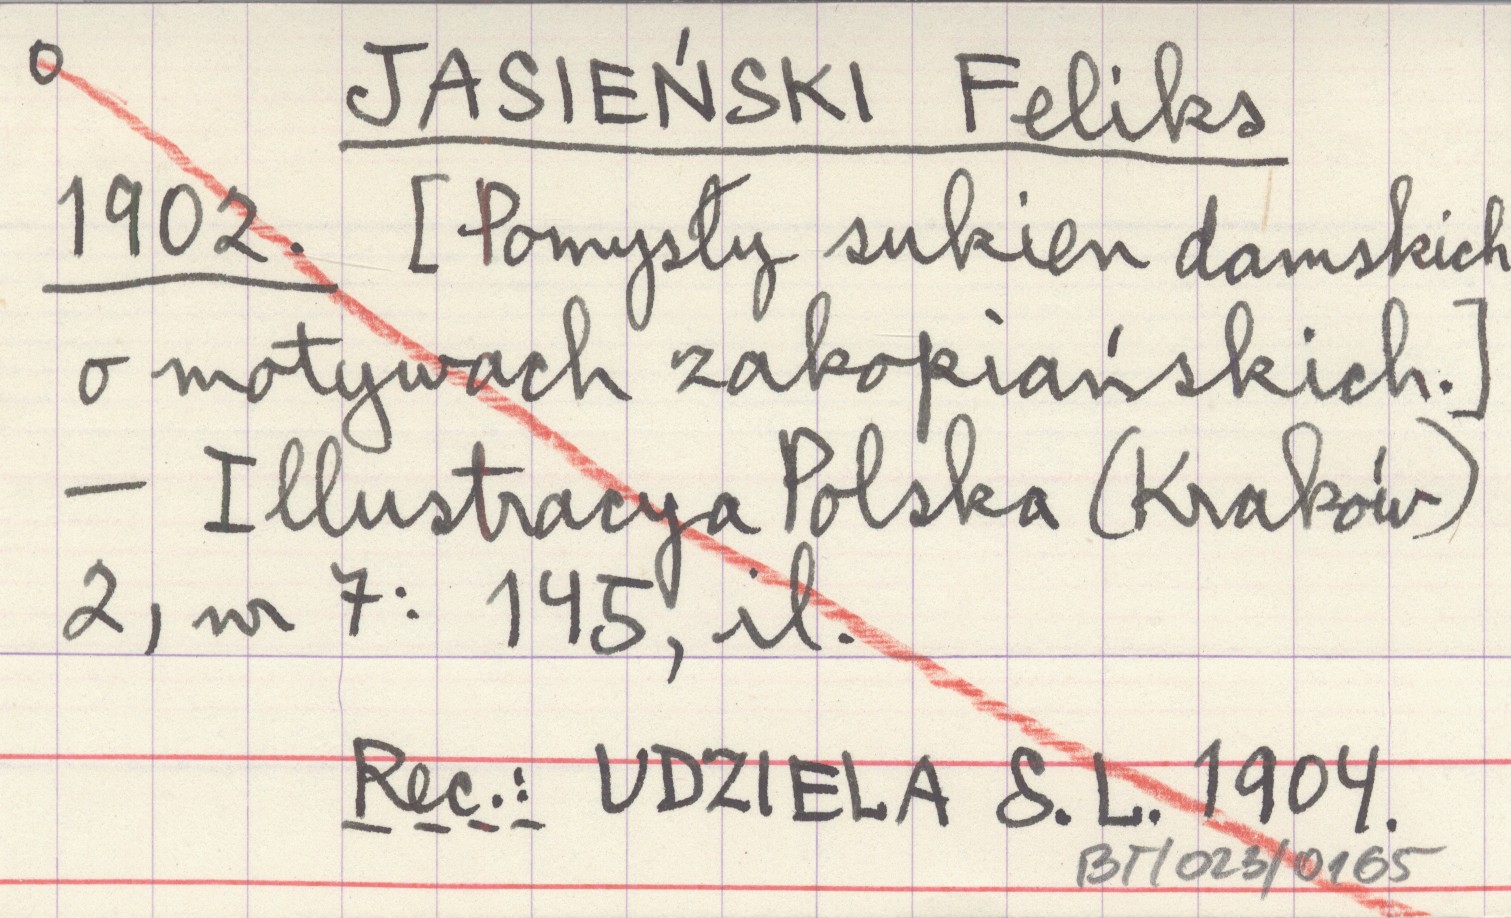 o JASIEŃSKI Feliks
1902. [Pomysły sukien damskich
o motywach zakopiańskich.]
— Illustracya Polska (Kraków)
2, nr 7: 145, il.
Rec.: UDZIELA S. L. 1904.
BT/023/0165